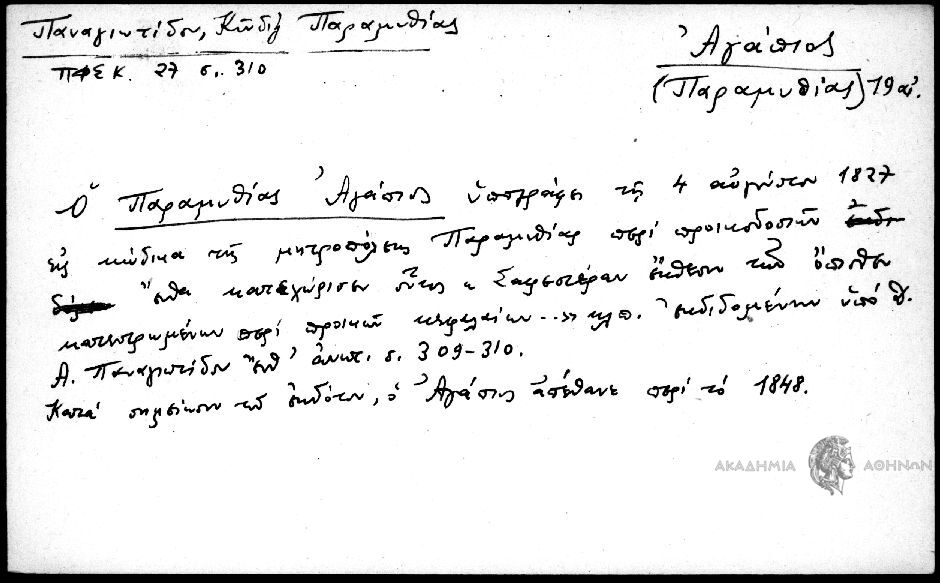 Παναγιωτίδου, Κῶδιξ Παραμυθίας
ΠΦΣΚ. 27 σ. 310
Ἀγάπιος
(Παραμυθίας) 19 αἰ.
Ὁ Παραμυθίας Ἀγάπιος ὑπογράφει τῇ 4 αὐγούστου 1827
εἰς κώδικα τῆς μητροπόλεως Παραμυθίας περὶ προικοδοσιῶν
ἔνθα κατεχώρισεν οὗτος « Σαφεστέραν ἔκθεσιν τῶν ὄπισθεν
κατεστρωμένων περὶ προικῶν κεφαλαίων...» κλπ. ἐκδιδομένων ὑπὸ
Α. Παναγιωτίδου ἔνθ' ἀνωτ. σ. 309-310.
Κατὰ σημείωσιν τοῦ ἐκδότου, ὁ Ἀγάπιος ἀπέθανε περὶ τὸ 1848.
ΑΚΑΔΗΜΙΑ ΑΘΗΝΩΝ